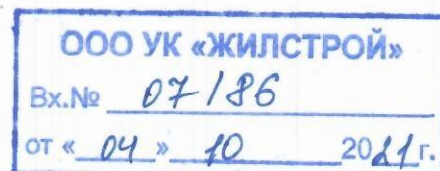 ООО УК «ЖИЛСТРОЙ»
Вх.№ 07/86
от « 04 » 10 2021 г.